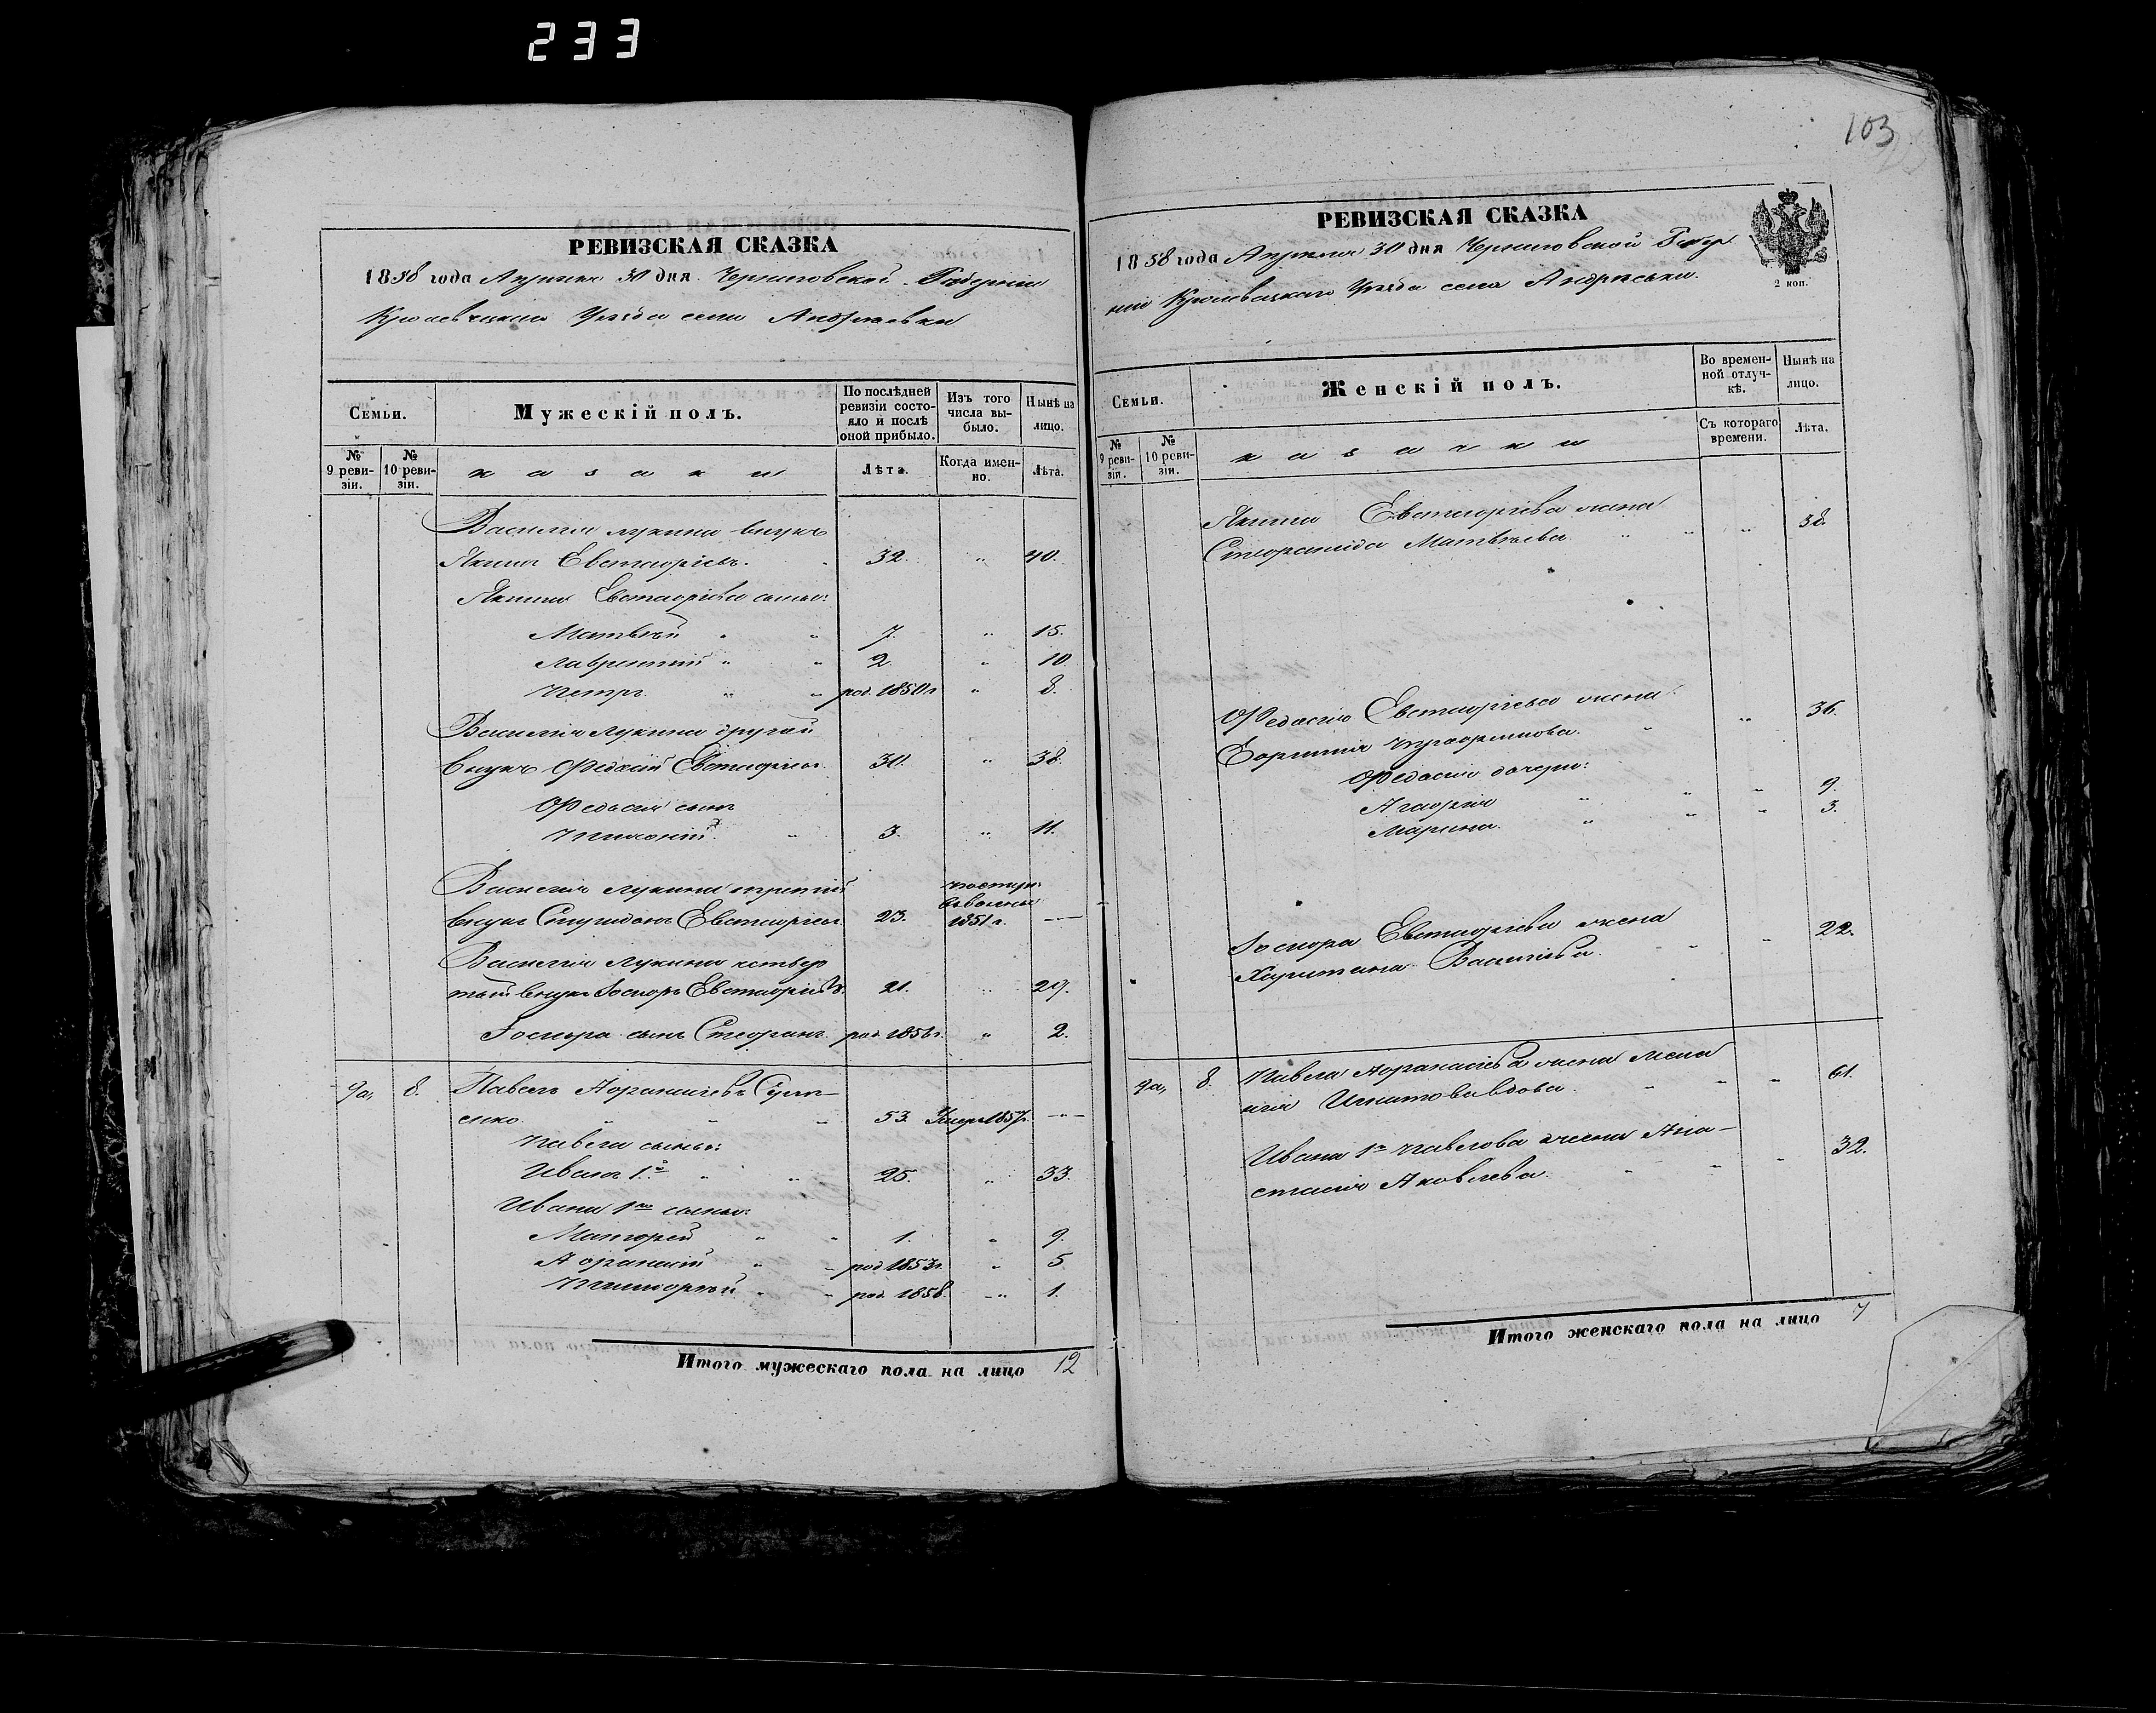 233
103
РЕВИЗСКАЯ СКАЗКА
1858 года Апреля 30 дня Черниговской Губернии
Кролевецкаго Уезда села Андреевки
Семьи.
Мужескій полъ.
По послѣдней ревизіи состояло и послѣ оной прибыло.
Изъ того числа выбыло.
Нынѣ на лицо.
№ 9 ревизіи.
№ 10 ревизіи.
казаки
Лѣта.
Когда именно.
Лѣта.
Василия Лукина внукъ
Якимъ Евстафіевъ. 32. " 40.
Якима Евстафіева сынья:
Матвѣй " " 7. " 15.
Лаврентій " " 2. " 10.
Петръ " " род. 1850 г. " 8.
Василия Лукина другой
внукъ Федосій Евстафіевъ 30. " 38.
Федосія сынъ
3. " 11.
Василия Лукина третій
внукъ Спиридонъ Евстафіевъ 23. 1851 г. —"—
Василия Лукина четвер
тый внукъ Іосифъ Евстафіевъ. 21. " 29.
Іосифа сынъ Стефанъ род. 1856 г. " 2.
9а, 8. Павелъ Афанасіевъ
енко. " " 53. Умеръ 1857 г. —"—
Павла сынья:
Иванъ 1й " " 25. " 33.
Ивана 1го сынья:
" " 1. " 9.
Афанасій " " род. 1853 г. " 5.
Тимофей " " род. 1856. " 1.
Итого мужескаго пола на лицо 12
РЕВИЗСКАЯ СКАЗКА
1858 года Апреля 30 дня Черниговской Губер
ніи Кролевецкаго Уѣзда села Андреевки.
2 коп.
Семьи.
Женскій полъ.
Во временной отлучкѣ.
Нынѣ на лицо.
№ 9 ревизіи.
№ 10 ревизіи.
казачки
Съ котораго времени.
Лѣта.
Якима Евстафіева жена
Стефанида Матвѣева " " " 38.
Федосія Евстафіева жена
" 36.
Федосія дочери:
Агафія " " " 9.
Марина. " " " 3.
Іосифа Евстафіева жена
Харитина Васильева. " " 22.
9а, 8. Павла Афанасіева жена Мела
нія Игнатова вдова. " " " 61.
Ивана 1го Павлова жена Ана-
стасія Яковлева. " " " 32.
Итого женскаго пола на лицо 7